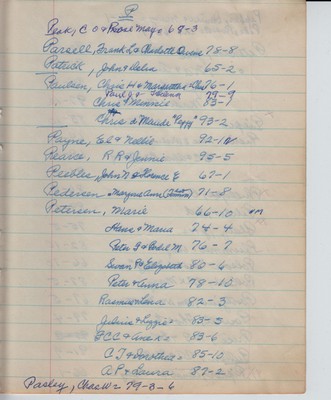 P
Peak, C O & Rhoda May 68-3
Parsell, Frank L & Charlotte 78-8
Patrick, John & Helen 65-2
Paulsen, Chris H & Margaretha 76-1
Paul J & 79-9
Chris & Minnie 83-7
Chris & Maude "Peggy" 93-2
Payne, Ed & Nellie 92-10
Pearce, R R & Jennie 95-5
Peebles, John N & Florence E 67-1
Pedersen Ann 71-8
Petersen, Marie 66-10
Hans & Maria 74-4
Peter J & M 76-7
Swan P & Elizabeth 80-6
Peter & Anna 78-10
Rasmus & Lena 82-3
Julius & Lizzie 85-5
& 83-6
C J & Dorothea 85-10
A P & Laura 87-2
Pasley, Chas W 79-3-6